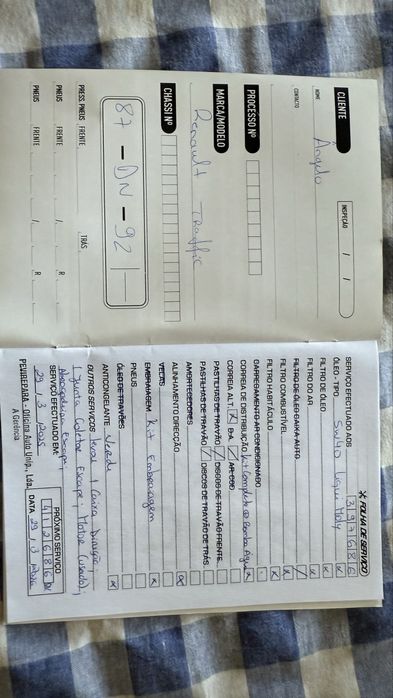 CLIENTE
INSPEÇÃO / /
NOME Ângelo
CONTACTO
PROCESSO Nº
MARCA/MODELO
Renault Traffic
CHASSI Nº
87 - DN - 92
PRESS PNEUS FRENTE TRÁS
PNEUS FRENTE / R
PNEUS FRENTE / R
FOLHA DE SERVIÇO
SERVIÇO EFECTUADO AOS 397686
ÓLEO - TIPO 5W40 Liqui Moly X
FILTRO DE ÓLEO X
FILTRO DO AR X
FILTRO DE ÓLEO CAIXA AUTO
FILTRO COMBUSTÍVEL X
FILTRO HABITÁCULO X
CARREGAMENTO AR CONDICIONADO
CORREIA DE DISTRIBUIÇÃO Kit Completo @ Bomba Água X
CORREIA ALT. X D.A. / AP. CLIO
PASTILHAS DE TRAVÃO / DISCOS DE TRAVÃO FRENTE
PASTILHAS DE TRAVÃO / DISCOS DE TRAVÃO DE TRÁS
AMORTECEDORES
ALINHAMENTO DIRECÇÃO X
VELAS
EMBRAIAGEM Kit Embraiagem X
PNEUS
ÓLEO DE TRAVÕES
ANTICONGELANTE Verde X
OUTROS SERVIÇOS 1 Caixa Direção,
1 Junta Coletor Escape; Motor (usado),
Escape;
SERVIÇO EFECTUADO EM:
29, 3 2025
PRÓXIMO SERVIÇO
412686
DATA 29, 3
PENIREPARA - Oficina Auto Unip., Lda.
A Gerência